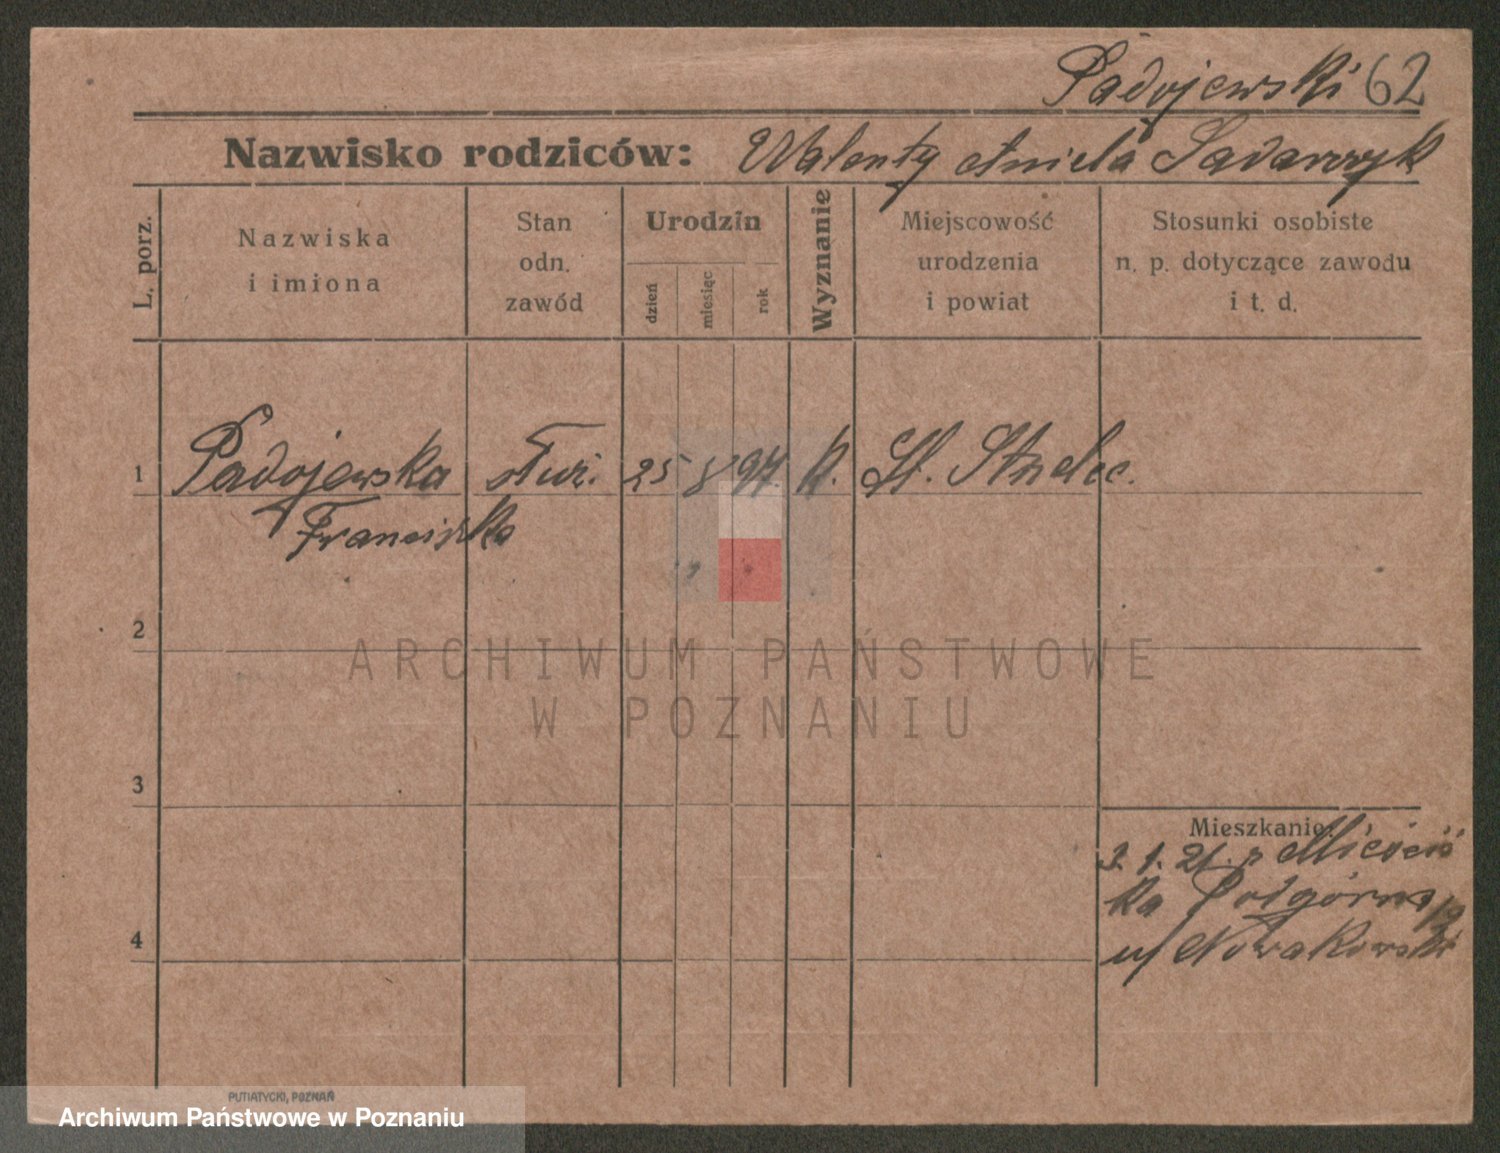 Padojewski 62
Nazwisko rodziców: Walenty Aniela
L. porz.
Nazwiska
i imiona
Stan
odn.
zawód
Urodzin
dzień
miesiąc
rok
Wyznanie
Miejscowość
urodzenia
i powiat
Stosunki osobiste
n. p. dotyczące zawodu
i t. d.
1 Padojewska służ. 25 8 97 k. St. Strzelec.
Franciszka
2
ARCHIWUM PAŃSTWOWE
W POZNANIU
3
Mieszkanie:
3. 1. 21. z
ka Półgórna
u/ Nowakowski
4
PUTIATYCKI, POZNAŃ
Archiwum Państwowe w Poznaniu